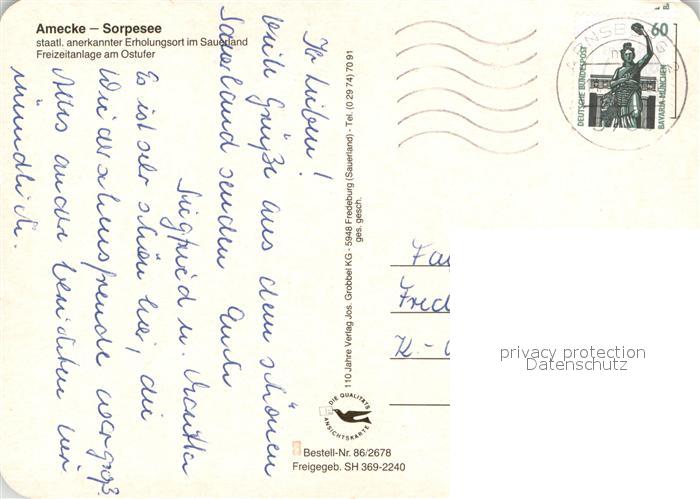 Amecke – Sorpesee
staatl. anerkannter Erholungsort im Sauerland
Freizeitanlage am Ostufer
Ihr Lieben!
viele Grüße aus dem schönen
Sauerland senden Euch
Siegfried u.
Es ist sehr schön hier, die
Wiedersehensfreude war groß.
Alles andere berichten wir
mündlich.
110 Jahre Verlag Jos. Grobbel KG - 5948 Fredeburg (Sauerland) - Tel. (0 29 74) 70 91
ges. gesch.
DIE QUALITÄTS
ANSICHTSKARTE
Bestell-Nr. 86/2678
Freigegeb. SH 369-2240
60
DEUTSCHE BUNDESPOST
BAVARIA MÜNCHEN
ARNSBERG
Fa
Fred
K-
privacy protection
Datenschutz